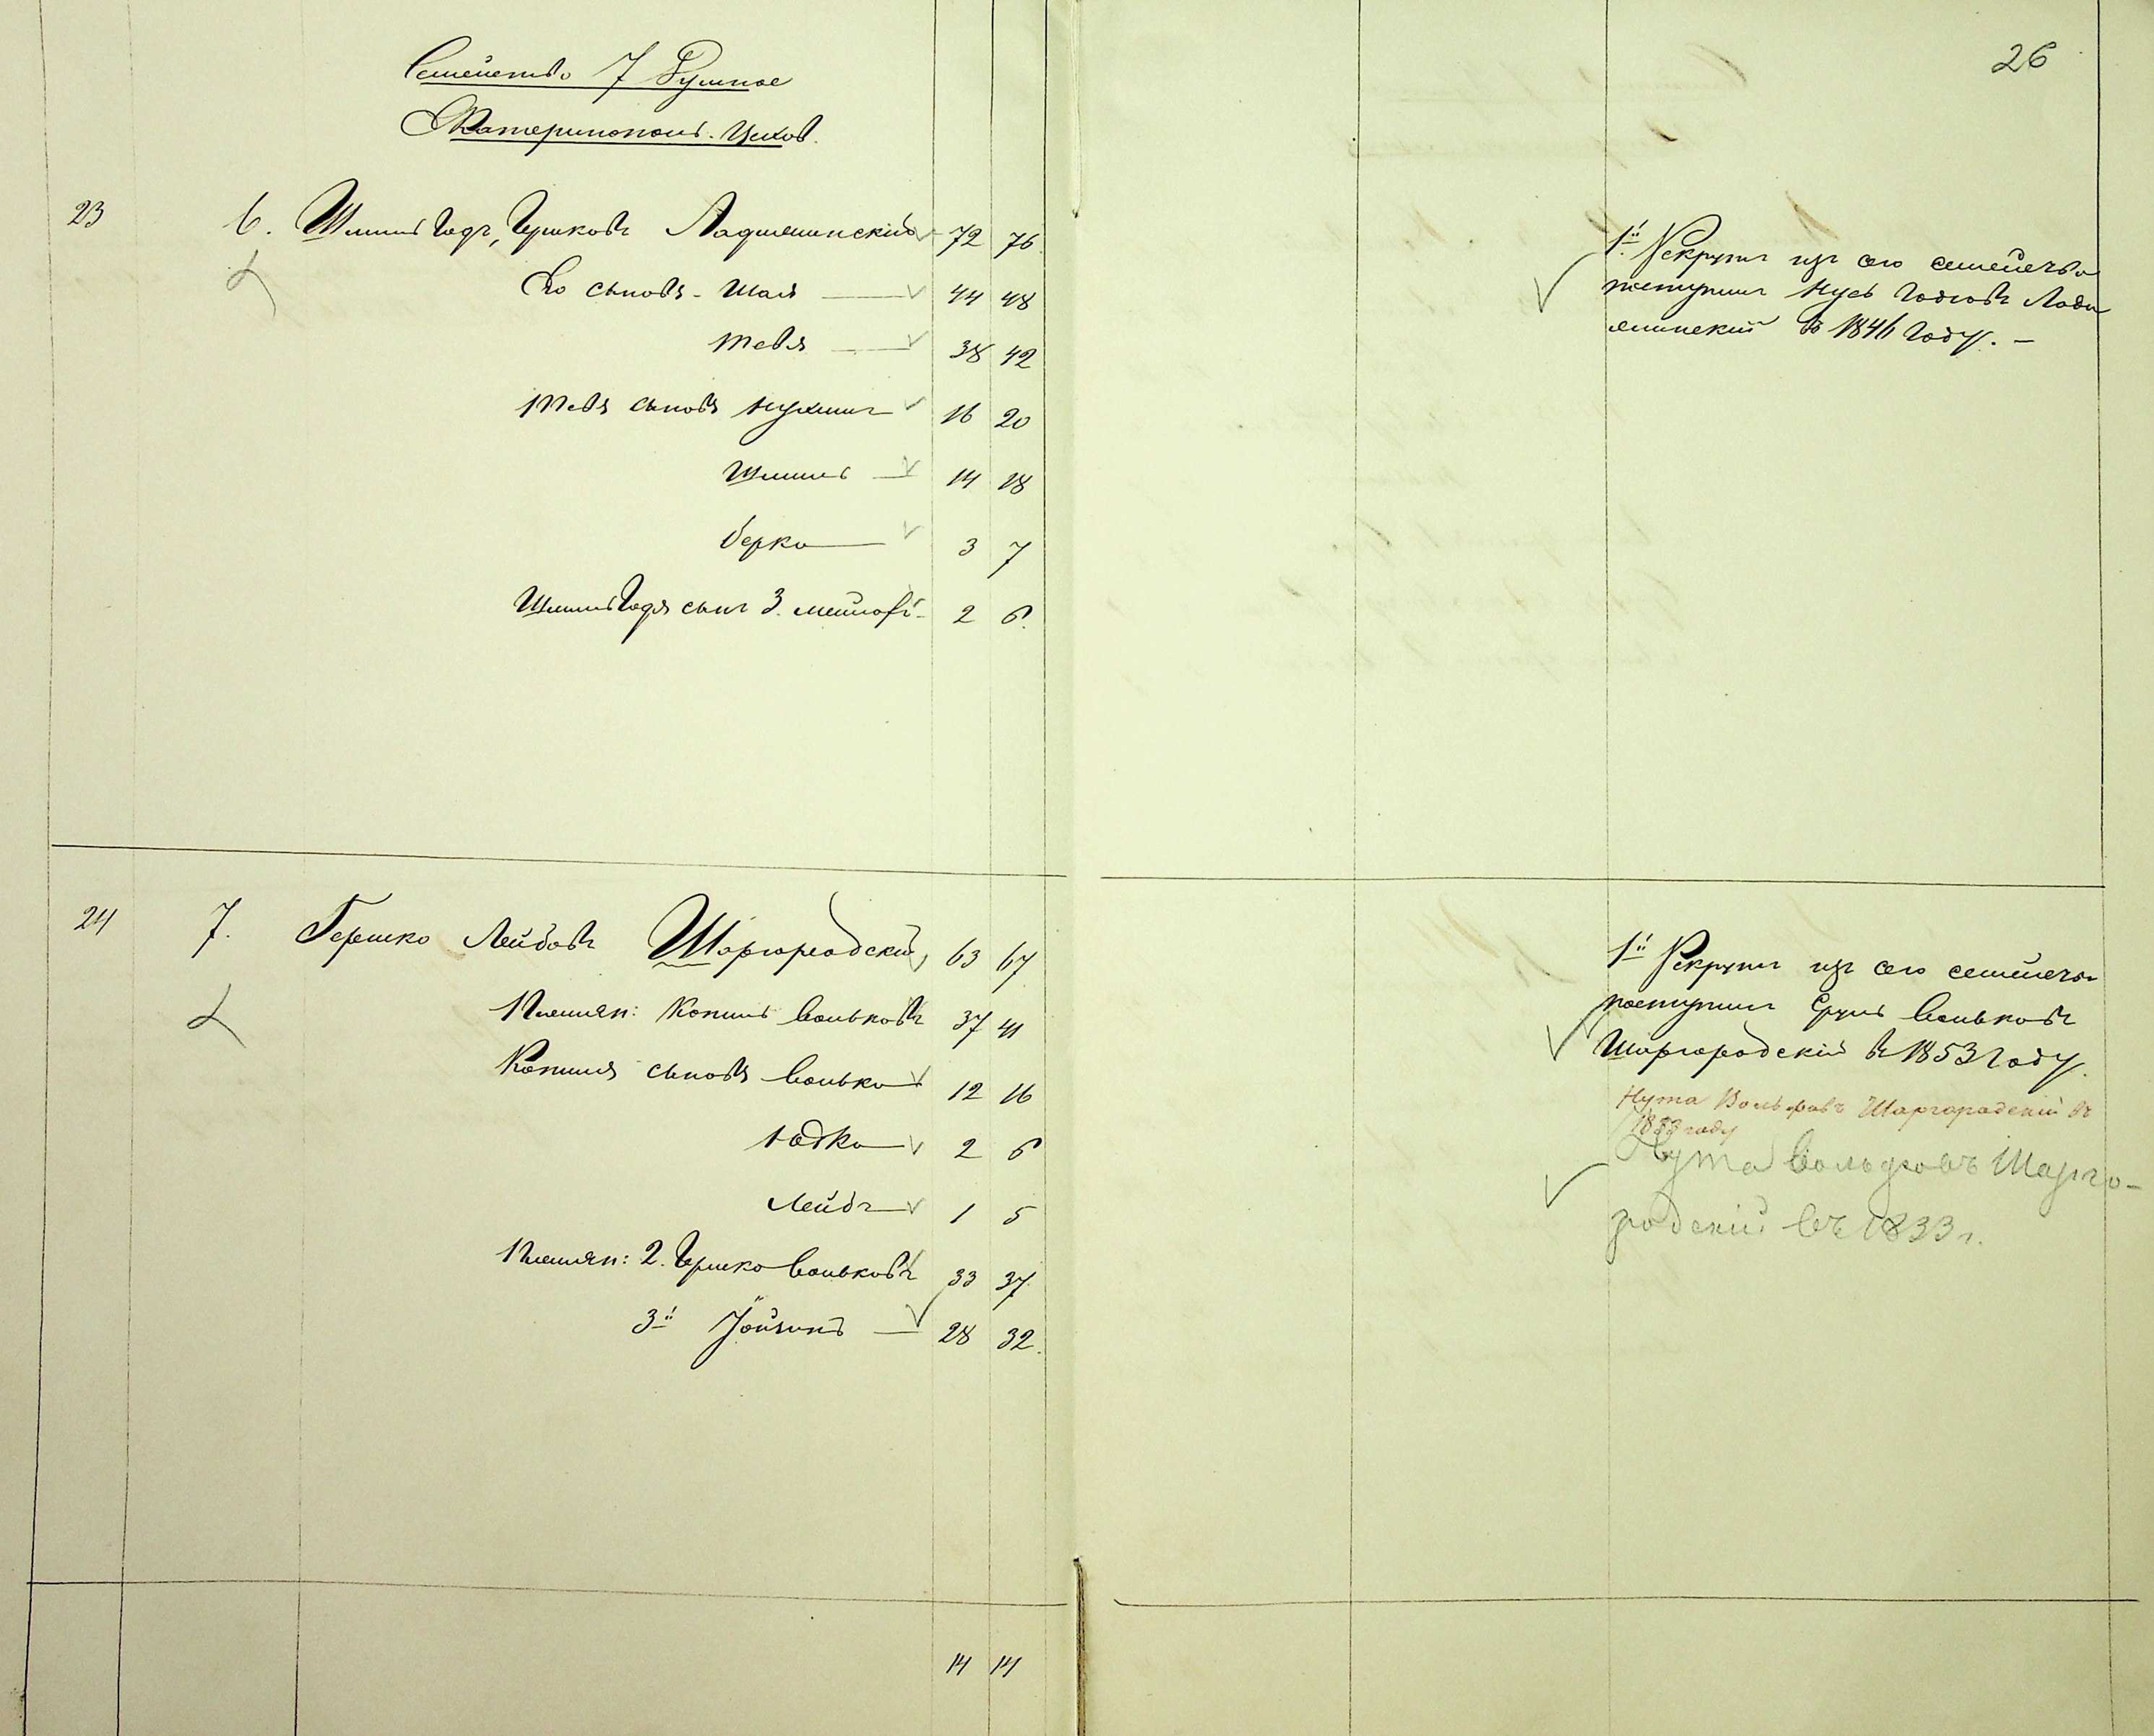 Семейство 7 Душное
Екатеринопол. Цехов.
26
23 6. Шмиль Годъ, Гершковъ Ладыженский 72 76
Его сыновья - Шая 44 48
Тевя 38 42
Тевя сыновья Нухимъ 16 20
Шмиль 14 18
Берко 3 7
Шмиль Годя сынъ 3. 2 6.
1й Рекрутъ изъ сего семейства
поступилъ Нусь Годовъ Лады
женский въ 1846 году. –
24 7. Гершко Лейбовъ Шаргородский 63 67
Племян: Копиль Вольковъ 37 41
Копиля сыновья Волько 12 16
Юдко 2 6
Лейбъ 1 5
Племян: 2. Гершко Вольковъ 33 37
3й 28 32.
1й Рекрутъ изъ сего семейства
поступилъ Сруль Вольковъ
Шаргородскій въ 1853 году.
Нута Вольфовъ Шаргородскій въ
1833 году
Нута Вольфовъ Шарго-
родскій въ 1833 г.
14 14